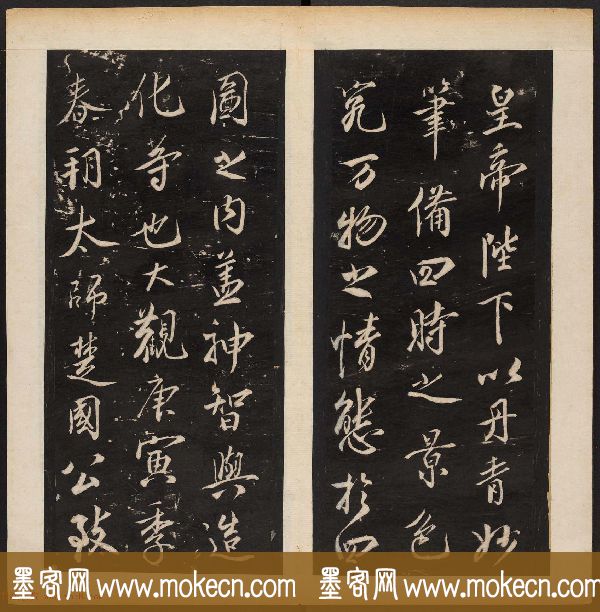 皇帝陛下以丹青妙
筆備四時之景色
究万物之情態於四
圖之内盖神智與造
化等也大觀庚寅季
春朔太師楚國公致
墨客网 www.mokecn.com 墨客网 www.mokecn.com